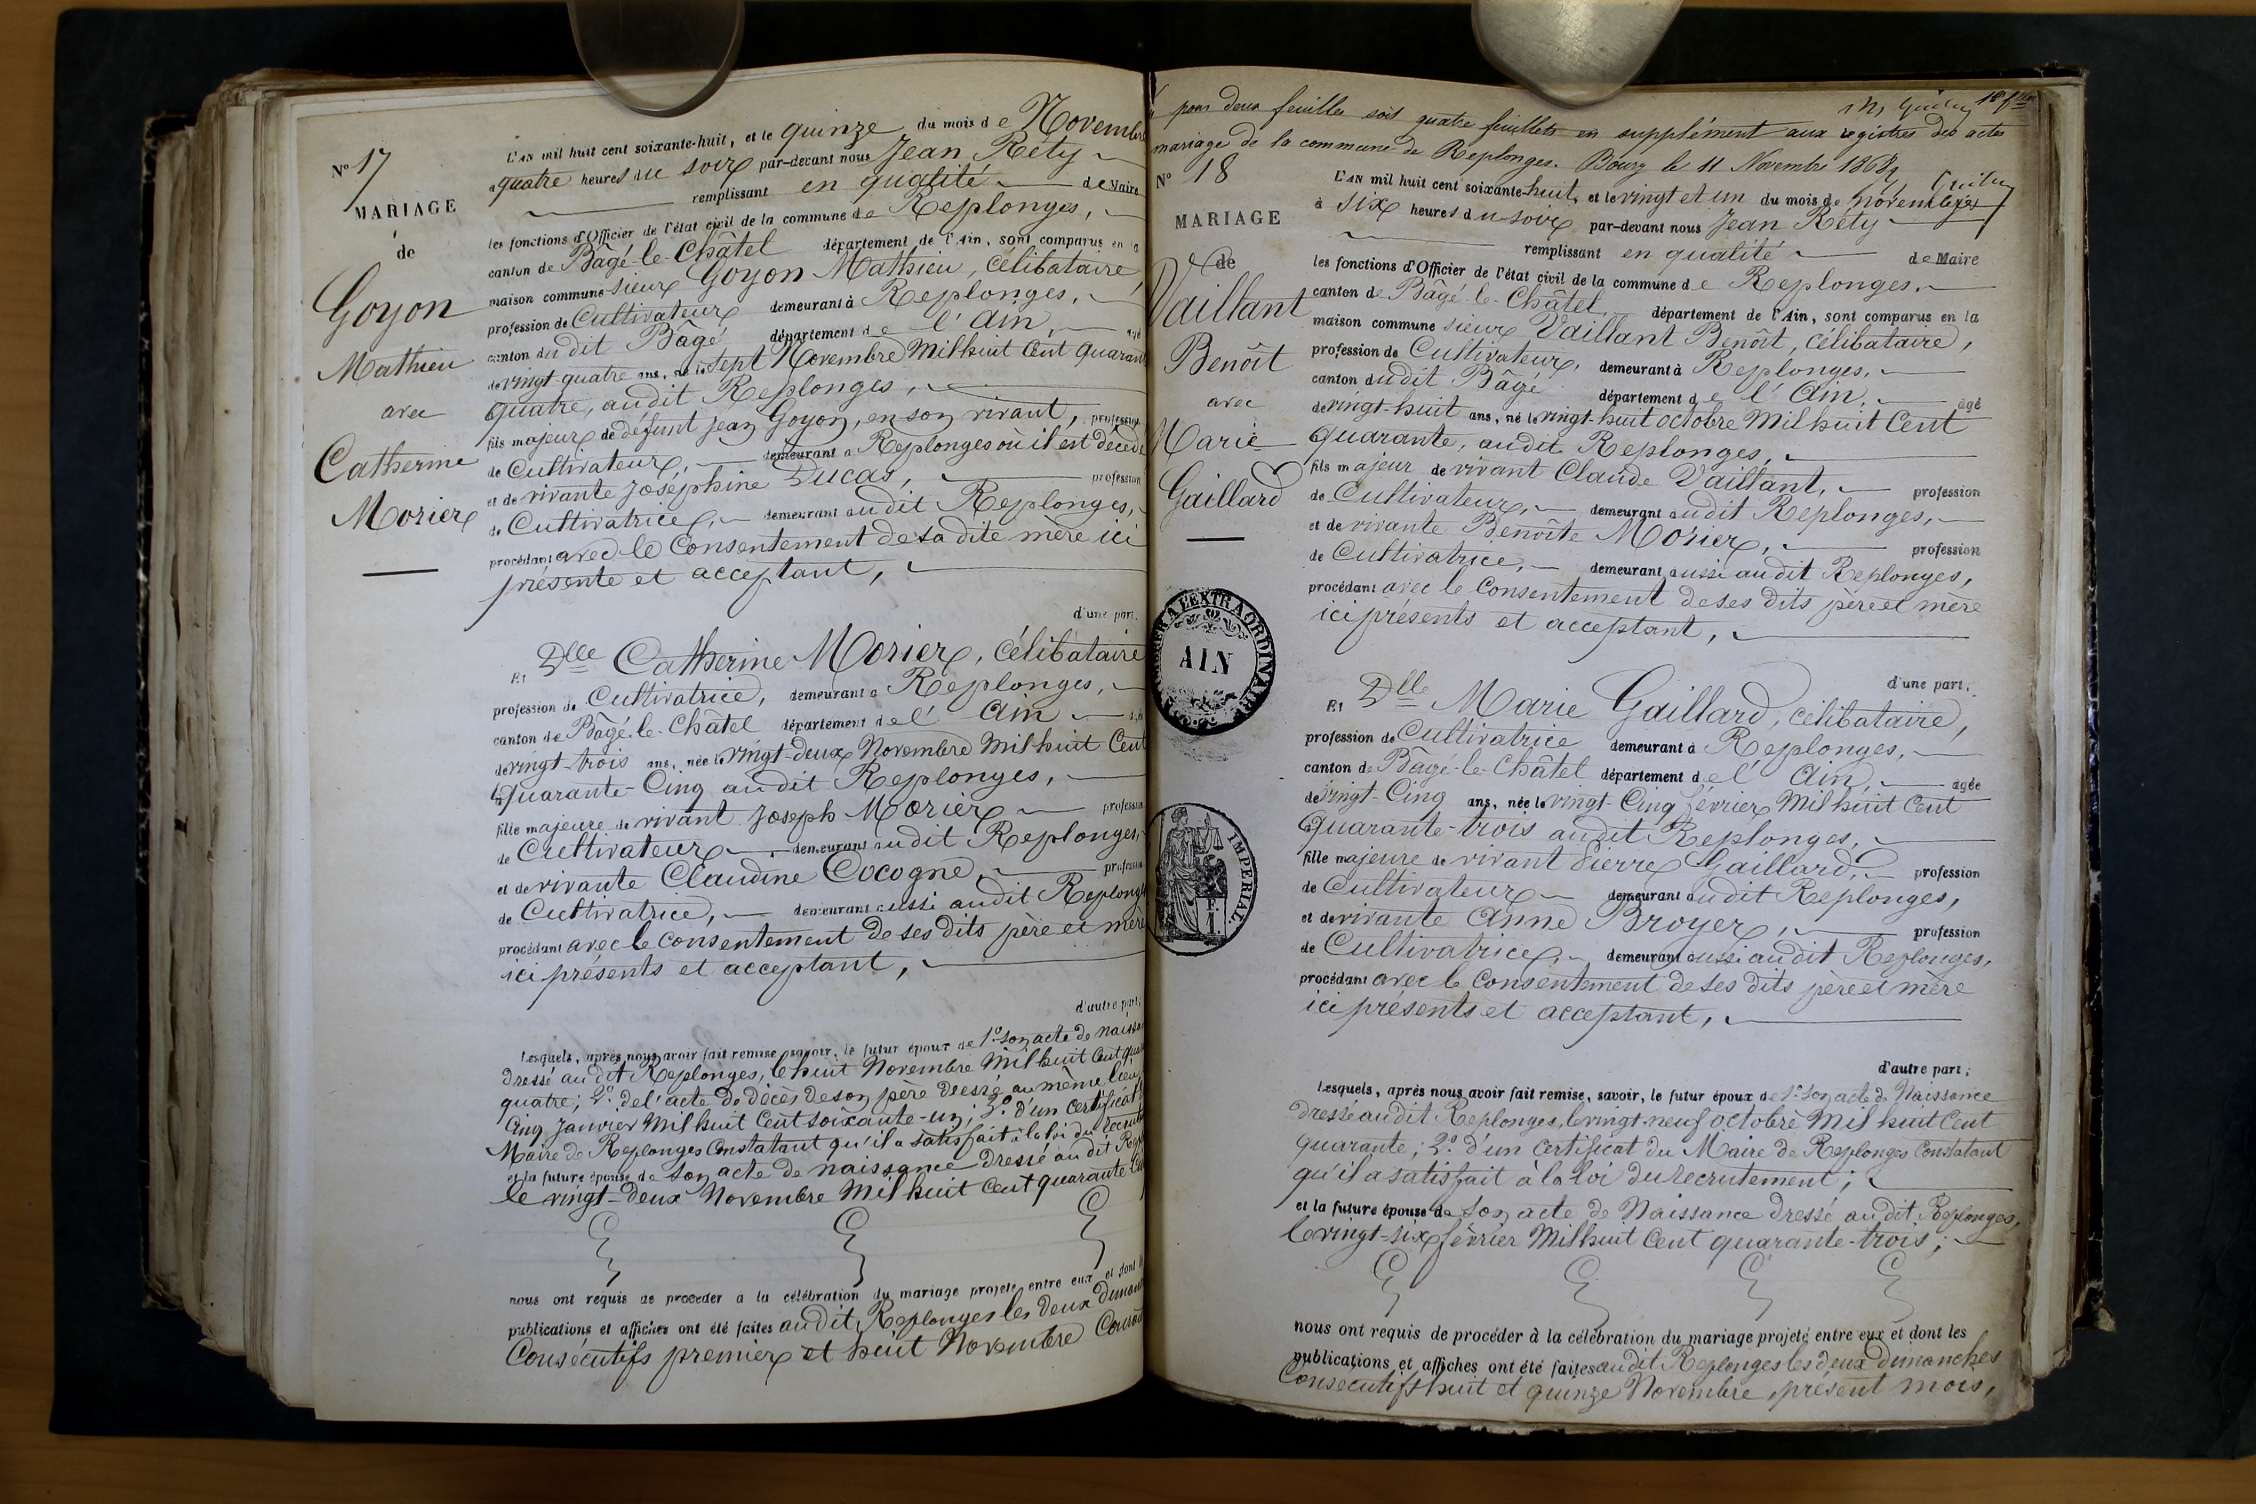 N° 17
MARIAGE
de
Goyon
Mathieu
avec
Catherine
Morier
L'AN mil huit cent soixante-huit, et le quinze du mois de Novembre
à quatre heures du soir par-devant nous Jean Réty
remplissant en qualité de Maire
les fonctions d'Officier de l'état civil de la commune de Replonges,
canton de Bâgé-le-Châtel département de l'Ain, sont comparus en la
maison commune sieur Goyon Mathieu, célibataire,
profession de Cultivateur demeurant à Replonges,
canton du dit Bâgé département de l'Ain, agé
de vingt-quatre ans, né le sept Novembre Mil huit Cent quarante
quatre, audit Replonges,
fils majeur de défunt Jean Goyon, en son vivant, profession
de Cultivateur, demeurant à Replonges où il est décédé
et de vivante Joséphine Ducas, profession
de Cultivatrice, demeurant audit Replonges,
procédant avec le Consentement de sa dite mère ici
présente et acceptant,
d'une part,
Et Dlle Catherine Morier, célibataire
profession de Cultivatrice, demeurant à Replonges,
canton de Bâgé-le-Châtel département de l'Ain agée
de vingt-trois ans, née le vingt-deux Novembre Mil huit Cent
quarante-Cinq audit Replonges,
fille majeure de vivant Joseph Morier profession
de Cultivateur demeurant audit Replonges,
et de vivante Claudine Cocogne, profession
de Cultivatrice, demeurant aussi audit Replonges
procédant avec le consentement de ses dits père et mère
ici présents et acceptant,
d'autre part;
Lesquels, après nous avoir fait remise, savoir, le futur époux de 1° son acte de naissance
dressé audit Replonges, le huit Novembre Mil huit Cent quarante
quatre; 2° de l'acte de décès de son père dressé au même lieu, le
Cinq Janvier Mil huit Cent soixante-un; 3° d'un Certificat du
Maire de Replonges Constatant qu'il a satisfait à la loi du recrutement
et la future épouse de son acte de naissance dressé audit Replonges
le vingt-deux Novembre Mil huit Cent quarante Cinq
nous ont requis de procéder à la célébration du mariage projeté entre eux et dont les
publications et affiches ont été faites audit Replonges les deux dimanches
Consécutifs premier et huit Novembre Courant
pour deux feuilles soit quatre feuillets en supplément aux registres des actes
mariage de la commune de Replonges. Bourg le 11 Novembre 1868
N° 18
MARIAGE
de
Vaillant
Benoît
avec
Marie
Gaillard
L'AN mil huit cent soixante-huit, et le vingt et un du mois de novembre
à six heures du soir par-devant nous Jean Réty
remplissant en qualité de Maire
les fonctions d'Officier de l'état civil de la commune de Replonges,
canton de Bâgé-le-Châtel, département de l'Ain, sont comparus en la
maison commune sieur Vaillant Benoît, célibataire,
profession de Cultivateur, demeurant à Replonges,
canton dudit Bâgé département de l'Ain, agé
de vingt-huit ans, né le vingt-huit octobre Mil huit Cent
quarante, audit Replonges,
fils majeur de vivant Claude Vaillant, profession
de Cultivateur, demeurant audit Replonges,
et de vivante Benoîte Morier, profession
de Cultivatrice, demeurant aussi audit Replonges,
procédant avec le Consentement de ses dits père et mère
ici présents et acceptant,
d'une part,
Et Dlle Marie Gaillard, célibataire,
profession de Cultivatrice demeurant à Replonges,
canton de Bâgé-le-Châtel département de l'Ain, agée
de vingt-Cinq ans, née le vingt-Cinq février Mil huit Cent
quarante-trois audit Replonges,
fille majeure de vivant Pierre Gaillard, profession
de Cultivateur demeurant audit Replonges,
et de vivante Anne Broyer, profession
de Cultivatrice, demeurant aussi audit Replonges,
procédant avec le Consentement de ses dits père et mère
ici présents et acceptant,
d'autre part;
Lesquels, après nous avoir fait remise, savoir, le futur époux de 1° son acte de Naissance
dressé audit Replonges, le vingt-neuf octobre Mil huit Cent
quarante; 2° d'un Certificat du Maire de Replonges Constatant
qu'il a satisfait à la loi du recrutement;
et la future épouse de son acte de Naissance dressé audit Replonges,
le vingt-six février Mil huit Cent quarante-trois;
nous ont requis de procéder à la célébration du mariage projeté entre eux et dont les
publications et affiches ont été faites audit Replonges les deux dimanches
Consécutifs huit et quinze Novembre, présent mois,
A L'EXTRAORDINAIRE
AIN
IMPERIAL